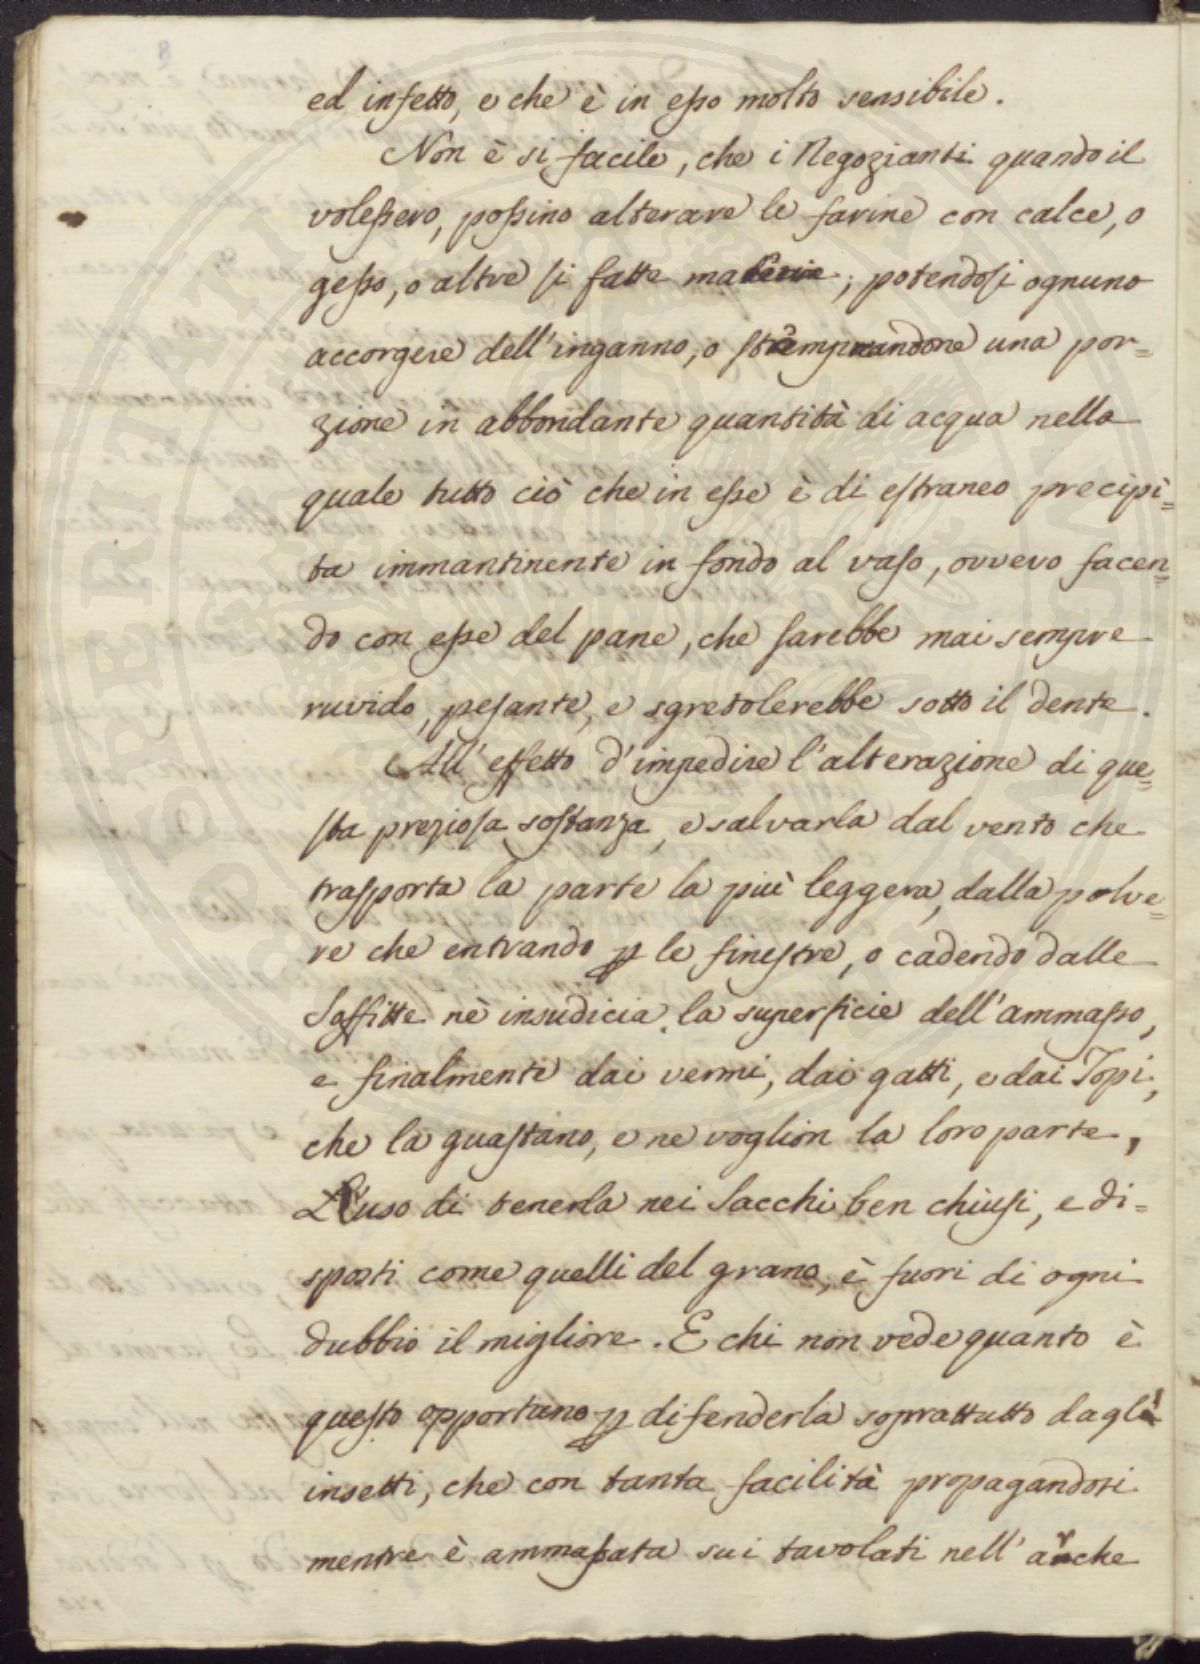 8
ed infetto, e che è in esso molto sensibile.
Non è si facile, che i Negozianti quando il
volessero, possino alterare le farine con calce, o
gesso, o altre si fatte materie; potendosi ognuno
accorgere dell'inganno, o stemprandone una por=
zione in abbondante quantità di acqua nella
quale tutto ciò che in esse è di estraneo precipi=
ta immantinente in fondo al vaso, ovvero facen=
do con esse del pane, che sarebbe mai sempre
ruvido, pesante, e sgretolerebbe sotto il dente.
All'effetto d'impedire l'alterazione di que=
sta preziosa sostanza, e salvarla dal vento che
trasporta la parte la più leggera, dalla polve=
re che entrando p le finestre, o cadendo dalle
Soffitte nè insudicia la superficie dell'ammasso,
e finalmente dai vermi, dai gatti, e dai Topi,
che la guastano, e ne voglion la loro parte,
L'uso di tenerla nei Sacchi ben chiusi, e di=
sposti come quelli del grano, è fuori di ogni
dubbio il migliore. E chi non vede quanto è
questo opportuno p difenderla soprattutto dagl'
insetti, che con tanta facilità propagandosi
mentre è ammassata sui tavolati nell'arche